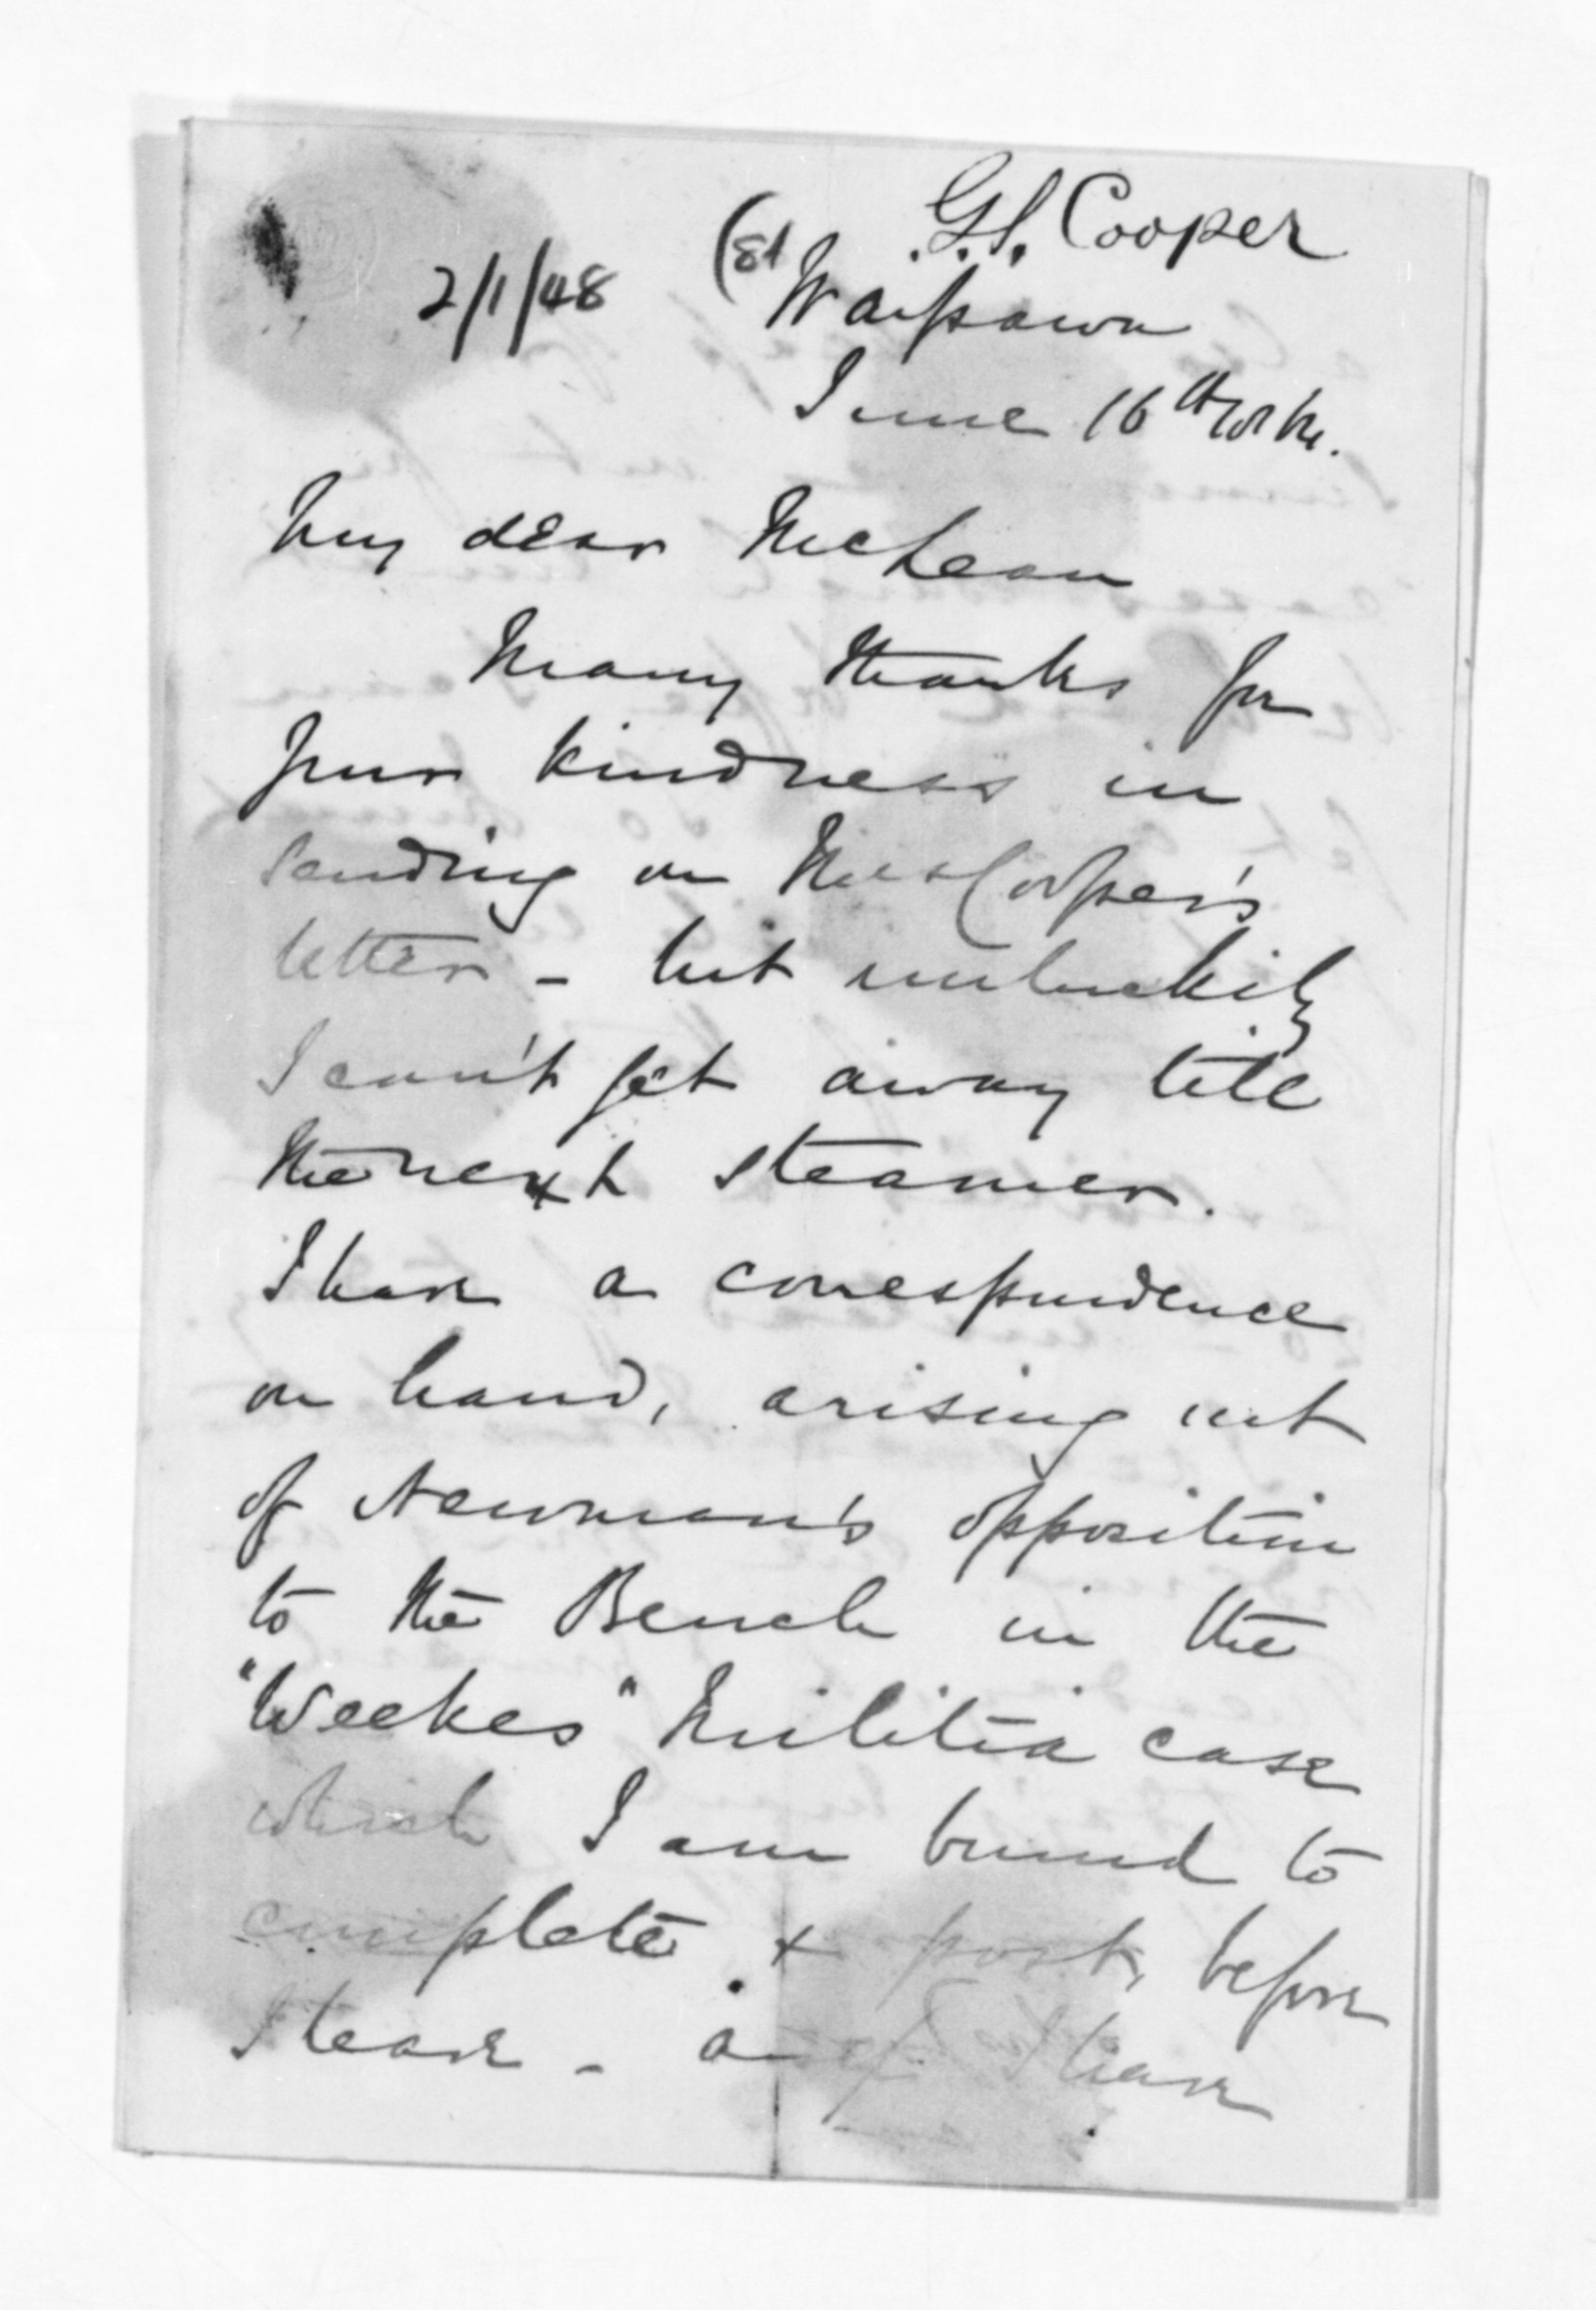 G.S. Cooper
(81
2/1/48
Waipawa
June 16th
My dear McLean
Many thanks for
your kindness in
sending on Mrs Cooper's
letter - but unluckily
I can't get away till
the next steamer.
I have a correspondence
on hand, arising out
of Newman's opposition
to the Bench in the
"Weekes" Militia case
which I am bound to
complete & post, before
I leave - I have